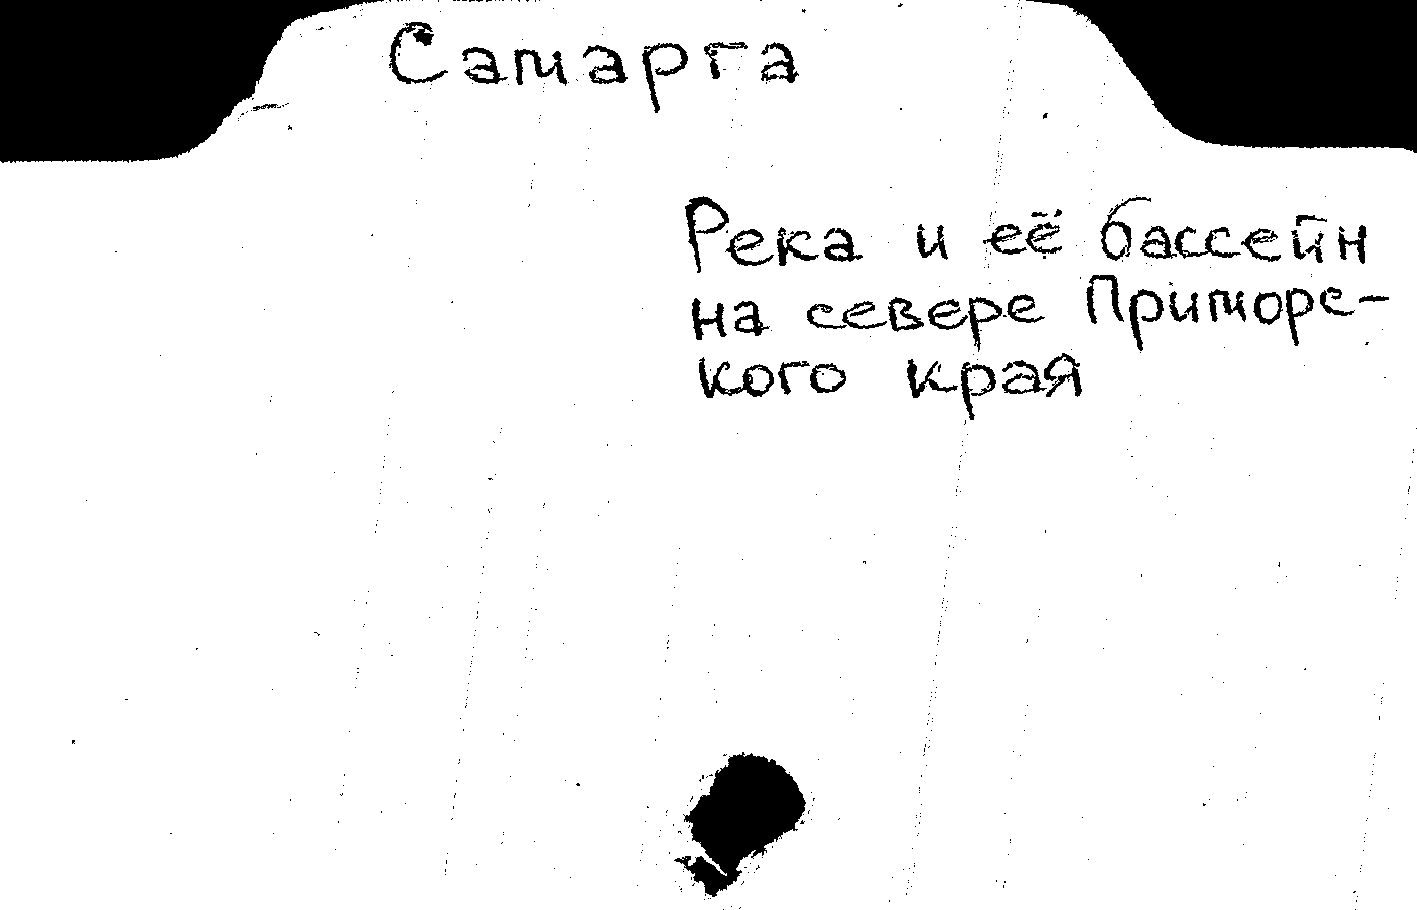 Самарга
Река и её бассейн
на севере Приморс-
кого края